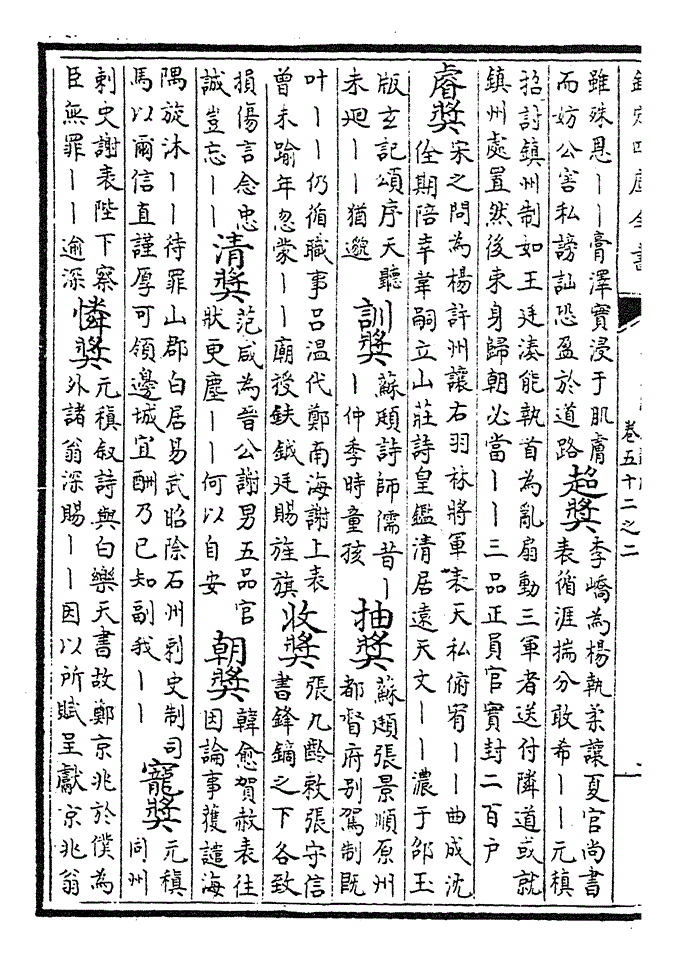 欽定四庫全書
卷五十二之二
雖殊恩丨丨膏澤實浸于肌膚
而妨公害私謗訕恐盈於道路
超奬
李嶠為楊執柔讓夏官尚書
表循涯揣分敢希丨丨元稹
招討鎮州制如王廷湊能執首為亂扇動三軍者送付隣道或就
鎮州處置然後束身歸朝必當丨丨三品正員官實封二百户
睿奬
宋之問為楊許州讓右羽林將軍表天私俯宥丨丨曲成沈
佺期陪幸韋嗣立山莊詩皇鑑清居遠天文丨丨濃于邵玉
版玄記頌序天聽
未廻丨丨猶邈
訓奬
蘇頲詩師儒昔丨
丨仲季時童孩
抽奬
蘇頲張景順原州
都督府别駕制既
叶丨丨仍循職事吕温代鄭南海謝上表
曾未踰年忽蒙丨丨廟授鈇鉞廷賜旌旗
收奬
張九齡敕張守信
書鋒鏑之下各致
損傷言念忠
誠豈忘丨丨
清奬
范咸為晉公謝男五品官
狀更塵丨丨何以自安
朝奬
韓愈賀赦表往
因論事獲譴海
隅旋沐丨丨待罪山郡白居易武昭除石州刺史制司
馬以爾信直謹厚可領邊城宜酬乃已知副我丨丨
寵奬
元稹
同州
刺史謝表陛下察
臣無罪丨丨逾深
憐奬
元稹叙詩與白樂天書故鄭京兆於僕為
外諸翁深賜丨丨因以所賦呈獻京兆翁